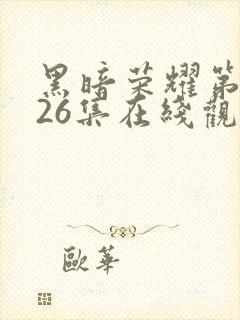 黑暗荣耀第
26集在线觀
歐華